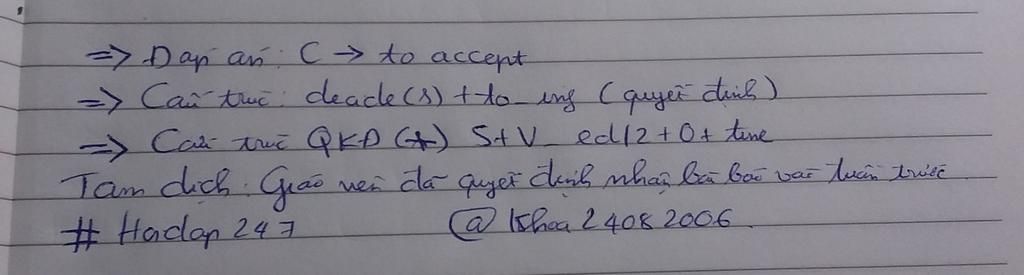 => Đáp án: C → to accept
=> Cấu trúc: deade(s) + to_ing (quyết định)
=> Cấu trúc QKĐ (+) S+V_ed/2+O+ time
Tạm dịch: Giáo viên đã quyết định nhận bài báo vào tuần trước.
# Hoidap247 @Khoa24082006.